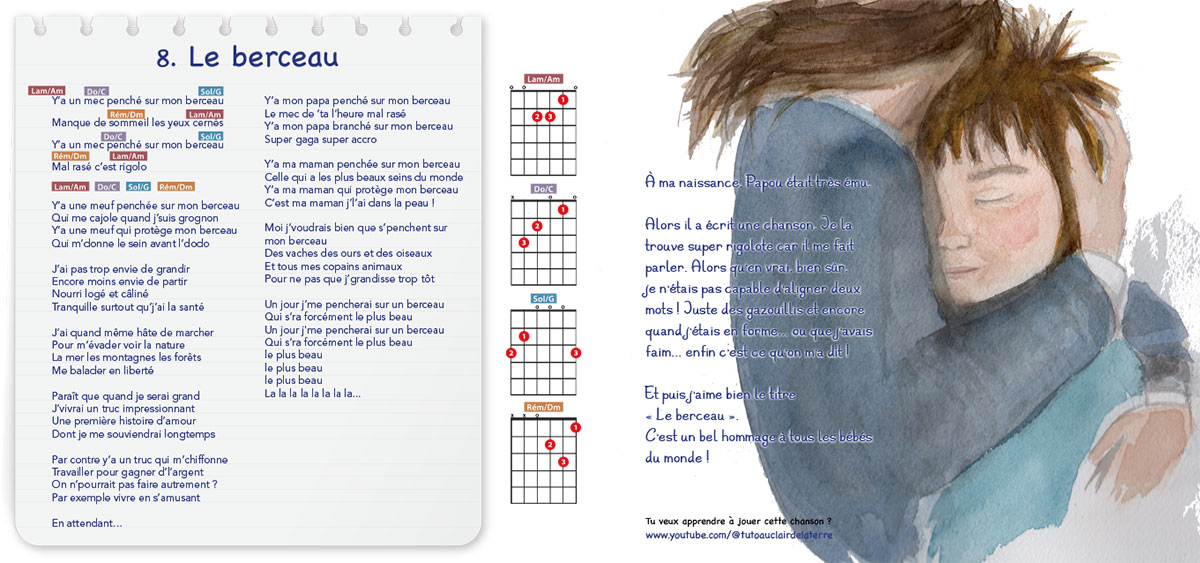 8. Le berceau
Lam/Am Do/C Sol/G
Y'a un mec penché sur mon berceau
Rém/Dm Lam/Am
Manque de sommeil les yeux cernés
Do/C Sol/G
Y'a un mec penché sur mon berceau
Rém/Dm Lam/Am
Mal rasé c'est rigolo
Lam/Am Do/C Sol/G Rém/Dm
Y'a une meuf penchée sur mon berceau
Qui me cajole quand j'suis grognon
Y'a une meuf qui protège mon berceau
Qui m'donne le sein avant l'dodo
J'ai pas trop envie de grandir
Encore moins envie de partir
Nourri logé et câliné
Tranquille surtout qu'j'ai la santé
J'ai quand même hâte de marcher
Pour m'évader voir la nature
La mer les montagnes les forêts
Me balader en liberté
Paraît que quand je serai grand
J'vivrai un truc impressionnant
Une première histoire d'amour
Dont je me souviendrai longtemps
Par contre y'a un truc qui m'chiffonne
Travailler pour gagner d'l'argent
On n'pourrait pas faire autrement ?
Par exemple vivre en s'amusant
En attendant...
Y'a mon papa penché sur mon berceau
Le mec de 'ta l'heure mal rasé
Y'a mon papa branché sur mon berceau
Super gaga super accro
Y'a ma maman penchée sur mon berceau
Celle qui a les plus beaux seins du monde
Y'a ma maman qui protège mon berceau
C'est ma maman j'l'ai dans la peau !
Moi j'voudrais bien que s'penchent sur
mon berceau
Des vaches des ours et des oiseaux
Et tous mes copains animaux
Pour ne pas que j'grandisse trop tôt
Un jour j'me pencherai sur un berceau
Qui s'ra forcément le plus beau
Un jour j'me pencherai sur un berceau
Qui s'ra forcément le plus beau
le plus beau
le plus beau
le plus beau
La la la la la la la la...
Lam/Am
o o
1
2 3
Do/C
x o o
1
2
3
Sol/G
o o o
1
2 3
Rém/Dm
x x o
1
2
3
À ma naissance, Papou était très ému.
Alors il a écrit une chanson. Je la
trouve super rigolote car il me fait
parler. Alors qu'en vrai, bien sûr,
je n'étais pas capable d'aligner deux
mots ! Juste des gazouillis et encore
quand j'étais en forme... ou que j'avais
faim... enfin c'est ce qu'on m'a dit !
Et puis j'aime bien le titre
« Le berceau ».
C'est un bel hommage à tous les bébés
du monde !
Tu veux apprendre à jouer cette chanson ?
www.youtube.com/@tutoauclairdelaterre